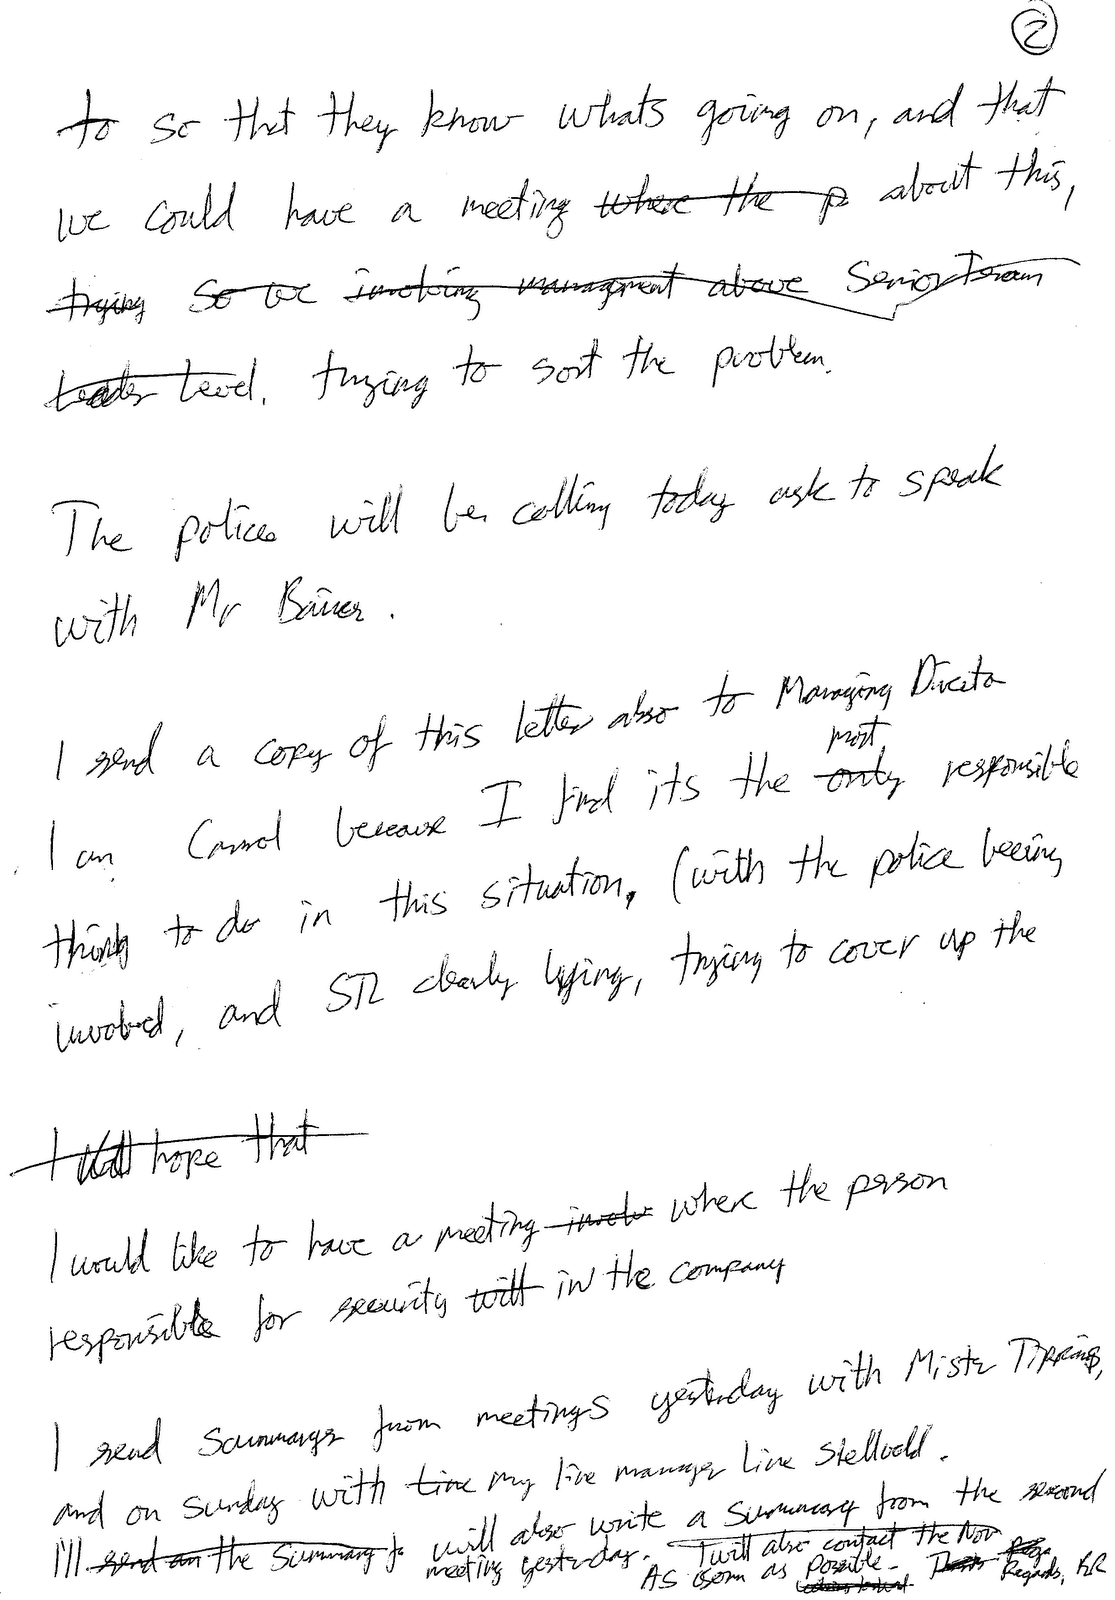 2
to so that they know whats going on, and that
we could have a meeting where the p about this,
trying So we involving managment above Senior Team
Leader Level. trying to sort the problem.
The police will be calling today ask to speak
with Mr
I send a copy of this letter also to Managing Director
most
I an because I find its the only responsible
thing to do in this situation, (with the police beeing
involved, and STL clearly lying, trying to cover up the
I will hope that
I would like to have a meeting involv where the person
responsible for security will in the company
I send summarys from meetings yesterday with Mister Tipping,
and on sunday with Line my line manager Line
I'll send an the summary to will also write a summary from the second
meeting yesterday. I will also contact the Nor
As soon as possible. Regards, RR